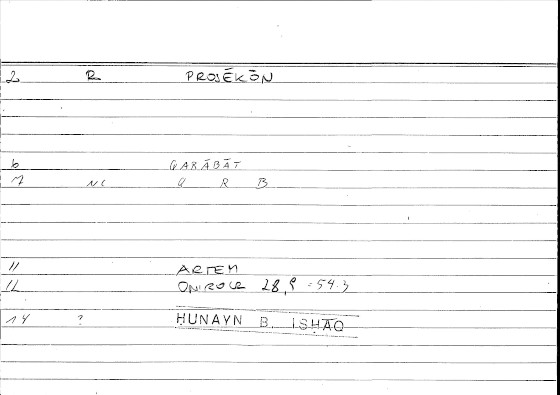 2 R PROSĒKŌN
6 QARĀBĀT
7 NC Q R B
11 ARTEM
12 ONIROCR 28,9 = 54.3
14 ? HUNAYN B. ISHĀQ